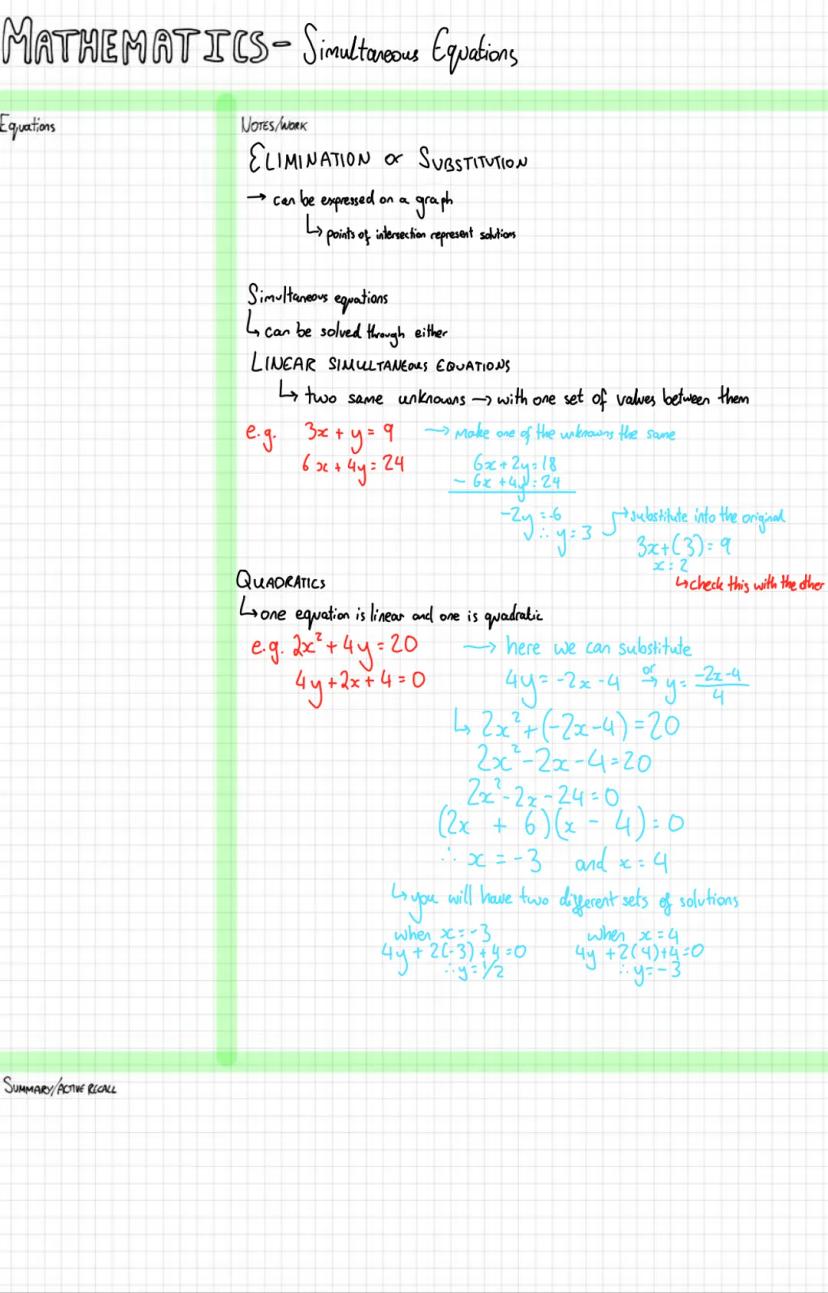 MATHEMATICS - Simultaneous Equations
Equations
NOTES/WORK
ELIMINATION or SUBSTITUTION
→ can be expressed on a graph
↳ points of intersection represent solutions
Simultaneous equations
↳ can be solved through either
LINEAR SIMULTANEOUS EQUATIONS
↳ two same unknowns → with one set of values between them
e.g. 3x + y = 9 → Make one of the unknowns the same
6x + 4y = 24
6x + 2y = 18
- 6x + 4y = 24
-2y = -6
∴ y = 3
→ substitute into the original
3x + (3) = 9
x = 2
↳ check this with the other
QUADRATICS
↳ one equation is linear and one is quadratic
e.g. 2x² + 4y = 20 → here we can substitute
4y + 2x + 4 = 0
4y = -2x - 4 or → y = (-2x-4)/4
↳ 2x² + (-2x-4) = 20
2x² - 2x - 4 = 20
2x² - 2x - 24 = 0
(2x + 6)(x - 4) = 0
∴ x = -3 and x = 4
↳ you will have two different sets of solutions
when x = -3
4y + 2(-3) + 4 = 0
∴ y = 1/2
when x = 4
4y + 2(4) + 4 = 0
∴ y = -3
SUMMARY/ACTIVE RECALL